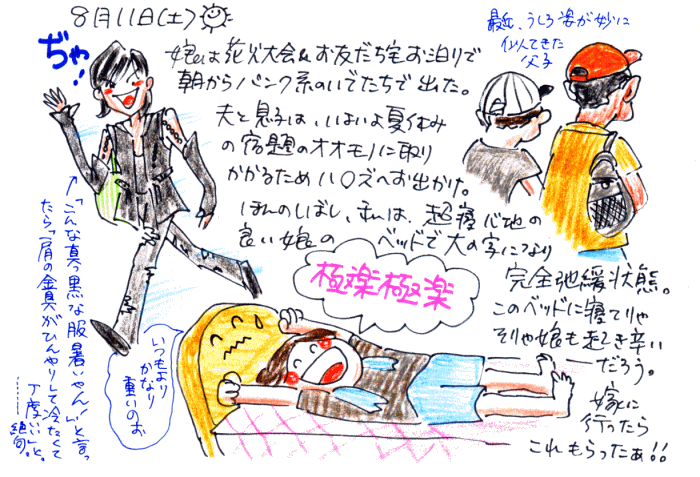 8月11日(土)
ぢゃ!
娘は花火大会&お友だち宅お泊りで
朝からパンク系のいでたちで出た。
夫と息子は、いよいよ夏休み
の宿題のオオモノに取り
かかるためハ○ズへお出かけ。
ほんのしばし、私は、超寝心地の
良い娘のベッドで大の字になり
完全弛緩状態。
このベッドに寝てりゃ
そりゃ娘も起き辛い
だろう。
嫁に
行ったら
これもらったぁ!!
最近、うしろ姿が妙に
似てきた
父子
極楽極楽
いつもより
かなり
重いのお
←「こんな真っ黒な服暑いやん!」と言っ
たら「肩の金具がひんやりして冷たくて
丁度いい」と。
……絶句。